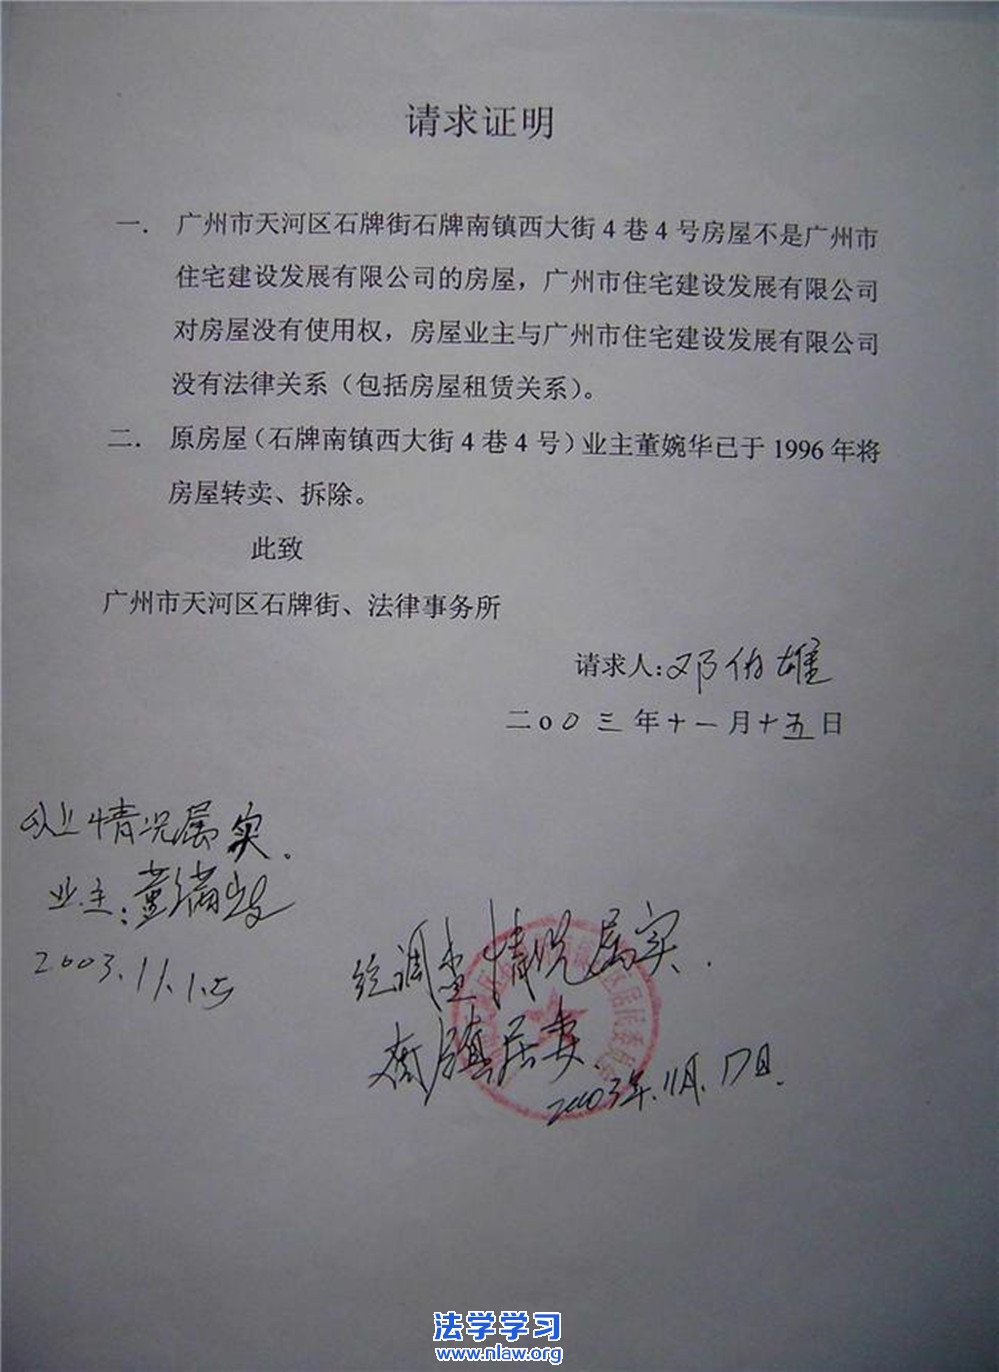 请求证明
一. 广州市天河区石牌街石牌南镇西大街4巷4号房屋不是广州市
住宅建设发展有限公司的房屋，广州市住宅建设发展有限公司
对房屋没有使用权，房屋业主与广州市住宅建设发展有限公司
没有法律关系（包括房屋租赁关系）。
二. 原房屋（石牌南镇西大街4巷4号）业主董婉华已于1996年将
房屋转卖、拆除。
此致
广州市天河区石牌街、法律事务所
请求人：邓伯雄
二o0三年十一月十五日
以上情况属实.
业主：董
2003.11.15
经调查情况属实.
南镇居委.
2003年.11月.17日.
居民委员
法学学习
www.nlaw.org